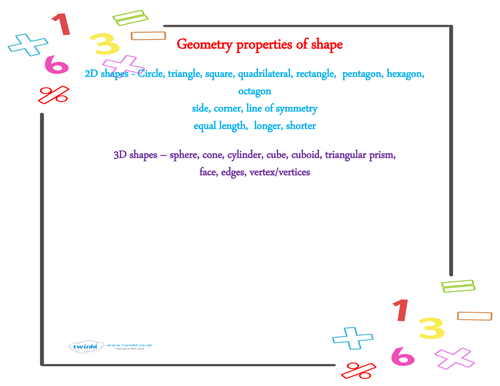 1
3
6
Geometry properties of shape
2D shapes - Circle, triangle, square, quadrilateral, rectangle, pentagon, hexagon,
octagon
side, corner, line of symmetry
equal length, longer, shorter
3D shapes – sphere, cone, cylinder, cube, cuboid, triangular prism,
face, edges, vertex/vertices
1
3
6
twinkl www.twinkl.co.uk